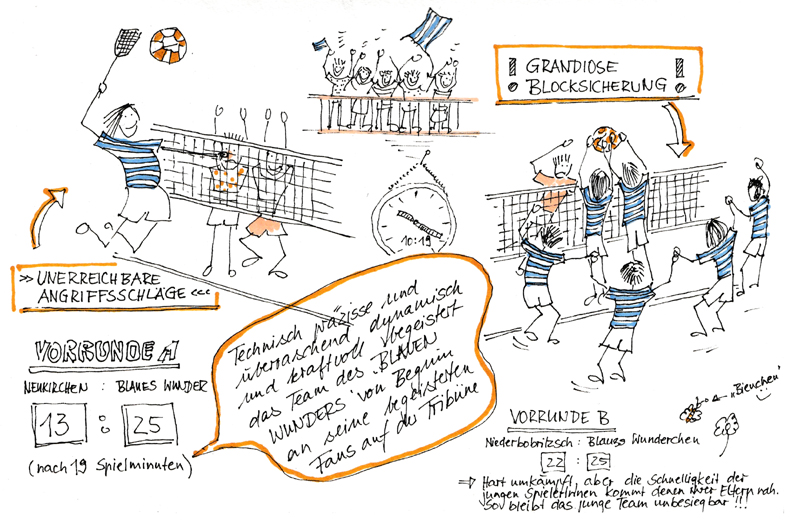 GRANDIOSE
BLOCKSICHERUNG
10:19
>> UNERREICHBARE
ANGRIFFSSCHLÄGE <<<
VORRUNDE A
NEUKIRCHEN : BLAUES WUNDER
13 : 25
(nach 19 Spielminuten)
Technisch präzisse und
überraschend dynamisch
und kraftvoll begeistert
das Team des "BLAUEN
WUNDERS" von Beginn
an seine begeisterten
Fans auf der Tribüne
"Bienchen"
VORRUNDE B
Niederbobritzsch : Blaues Wunderchen
22 : 25
⇒ Hart umkämpft, aber die Schnelligkeit der
jungen SpielerInnen kommt denen ihrer Eltern nah.
So bleibt das junge Team unbesiegbar !!!